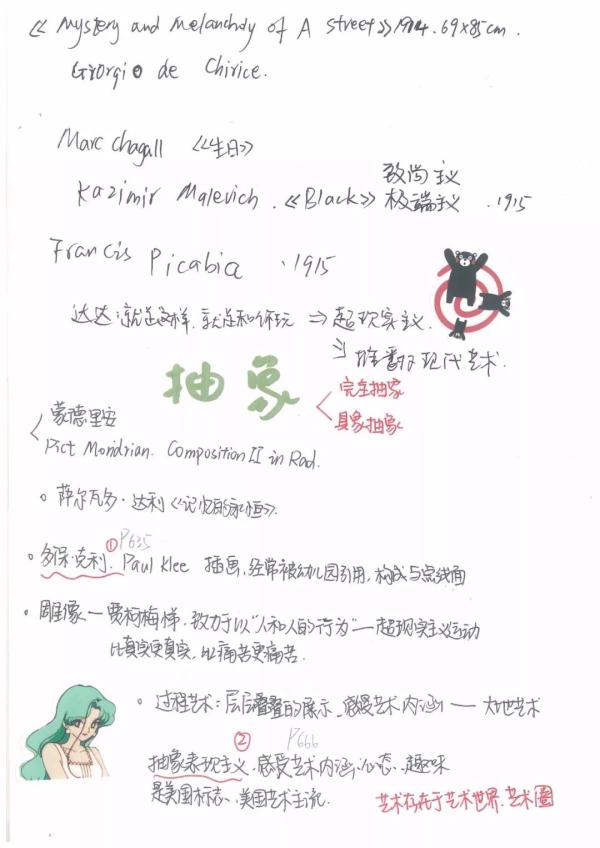 《Mystery and Melancholy of A street》1914. 69×85cm.
Giorgio de Chirice.
Marc Chagall 《生日》
致尚主义
Kazimir Malevich.《Black》极端主义 .1915
Francis Picabia .1915
达达:就是这样,就是和你玩 ⇒ 超现实主义.
⇒ 推翻了现代艺术.
抽象
完全抽象
具象抽象
蒙德里安
Piet Mondrian. Composition II in Rad.
萨尔瓦多·达利《记忆的永恒》.
① P635
保·克利. Paul Klee 插画,经常被幼儿园引用,构成与点线面
雕像—贾柯梅悌,致力于以"人和人的行为"—超现实主义运动
比真实更真实,比痛苦更痛苦.
过程艺术:层层叠叠的展示、感受艺术内涵 —— 大地艺术
② P666
抽象表现主义.感受艺术内涵.心态、趣味
是美国标志、美国艺术主流.
艺术存在于艺术世界.艺术圈